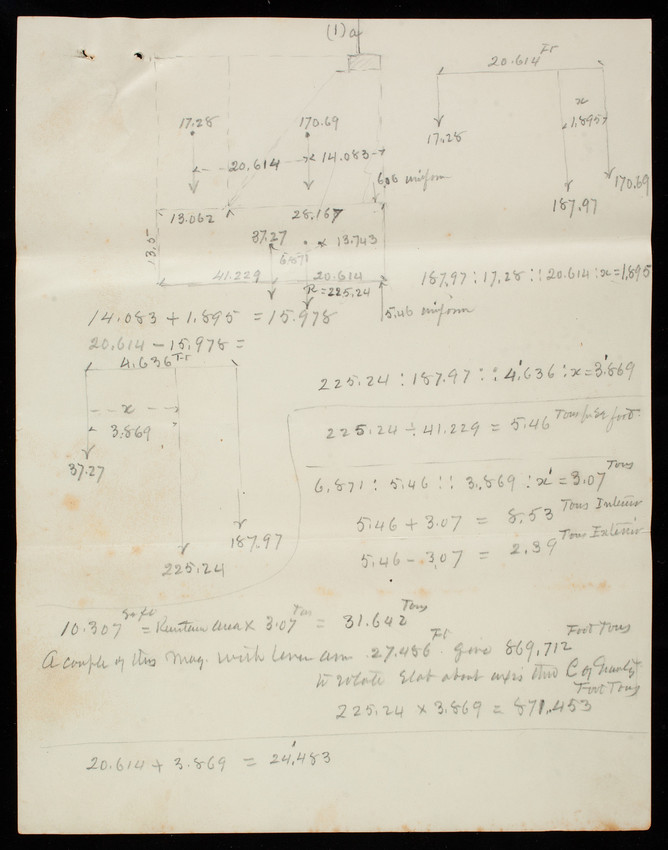 (1)a
20.614 Ft
17.28 170.69
x
1.895
20.614 14.083
17.28
170.69
187.97
.606 uniform
13.062 28.167
37.27 x 13.743
6.871
13.5
41.229 20.614
R = 225.24
187.97 : 17.28 :: 20.614 : x = 1.895
5.46 uniform
14.083 + 1.895 = 15.978
20.614 - 15.978 =
4.636 Ft
225.24 : 187.97 :: 4.636 : x = 3.869
x
3.869
225.24 ÷ 41.229 = 5.46 Tons per foot.
37.27
187.97
225.24
6.871 : 5.46 :: 3.869 : x' = 3.07 Tons
5.46 + 3.07 = 8.53 Tons Interior
5.46 - 3.07 = 2.39 Tons Exterior
10.307 = area x 3.07 Ton = 31.642 Tons
A couple of this Mag. with lever arm 27.486 Ft. gives 869,712 Foot Tons
to rotate slab about axis thro C of Gravity
225.24 x 3.869 = 871.453 Foot Tons
20.614 + 3.869 = 24.483